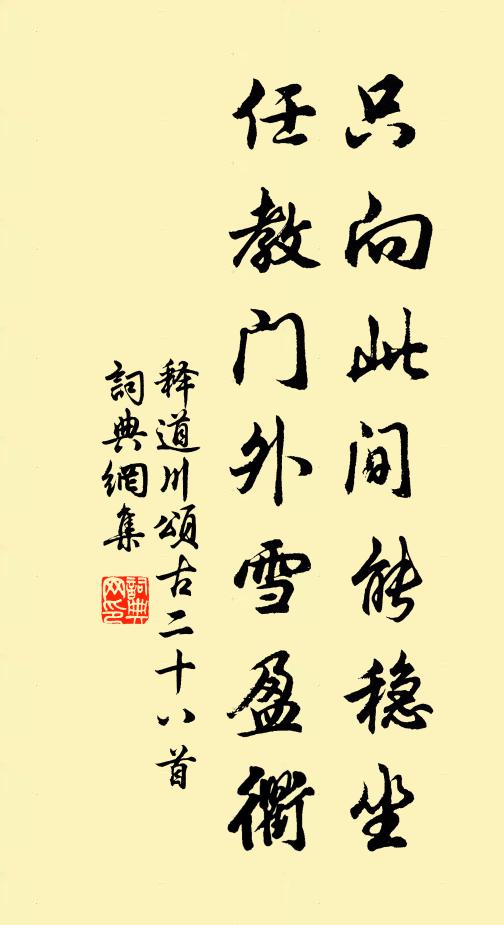 只向此间能稳坐
任教门外雪盈衢
释道川颂古二十八首
詞典網集
詞典網印